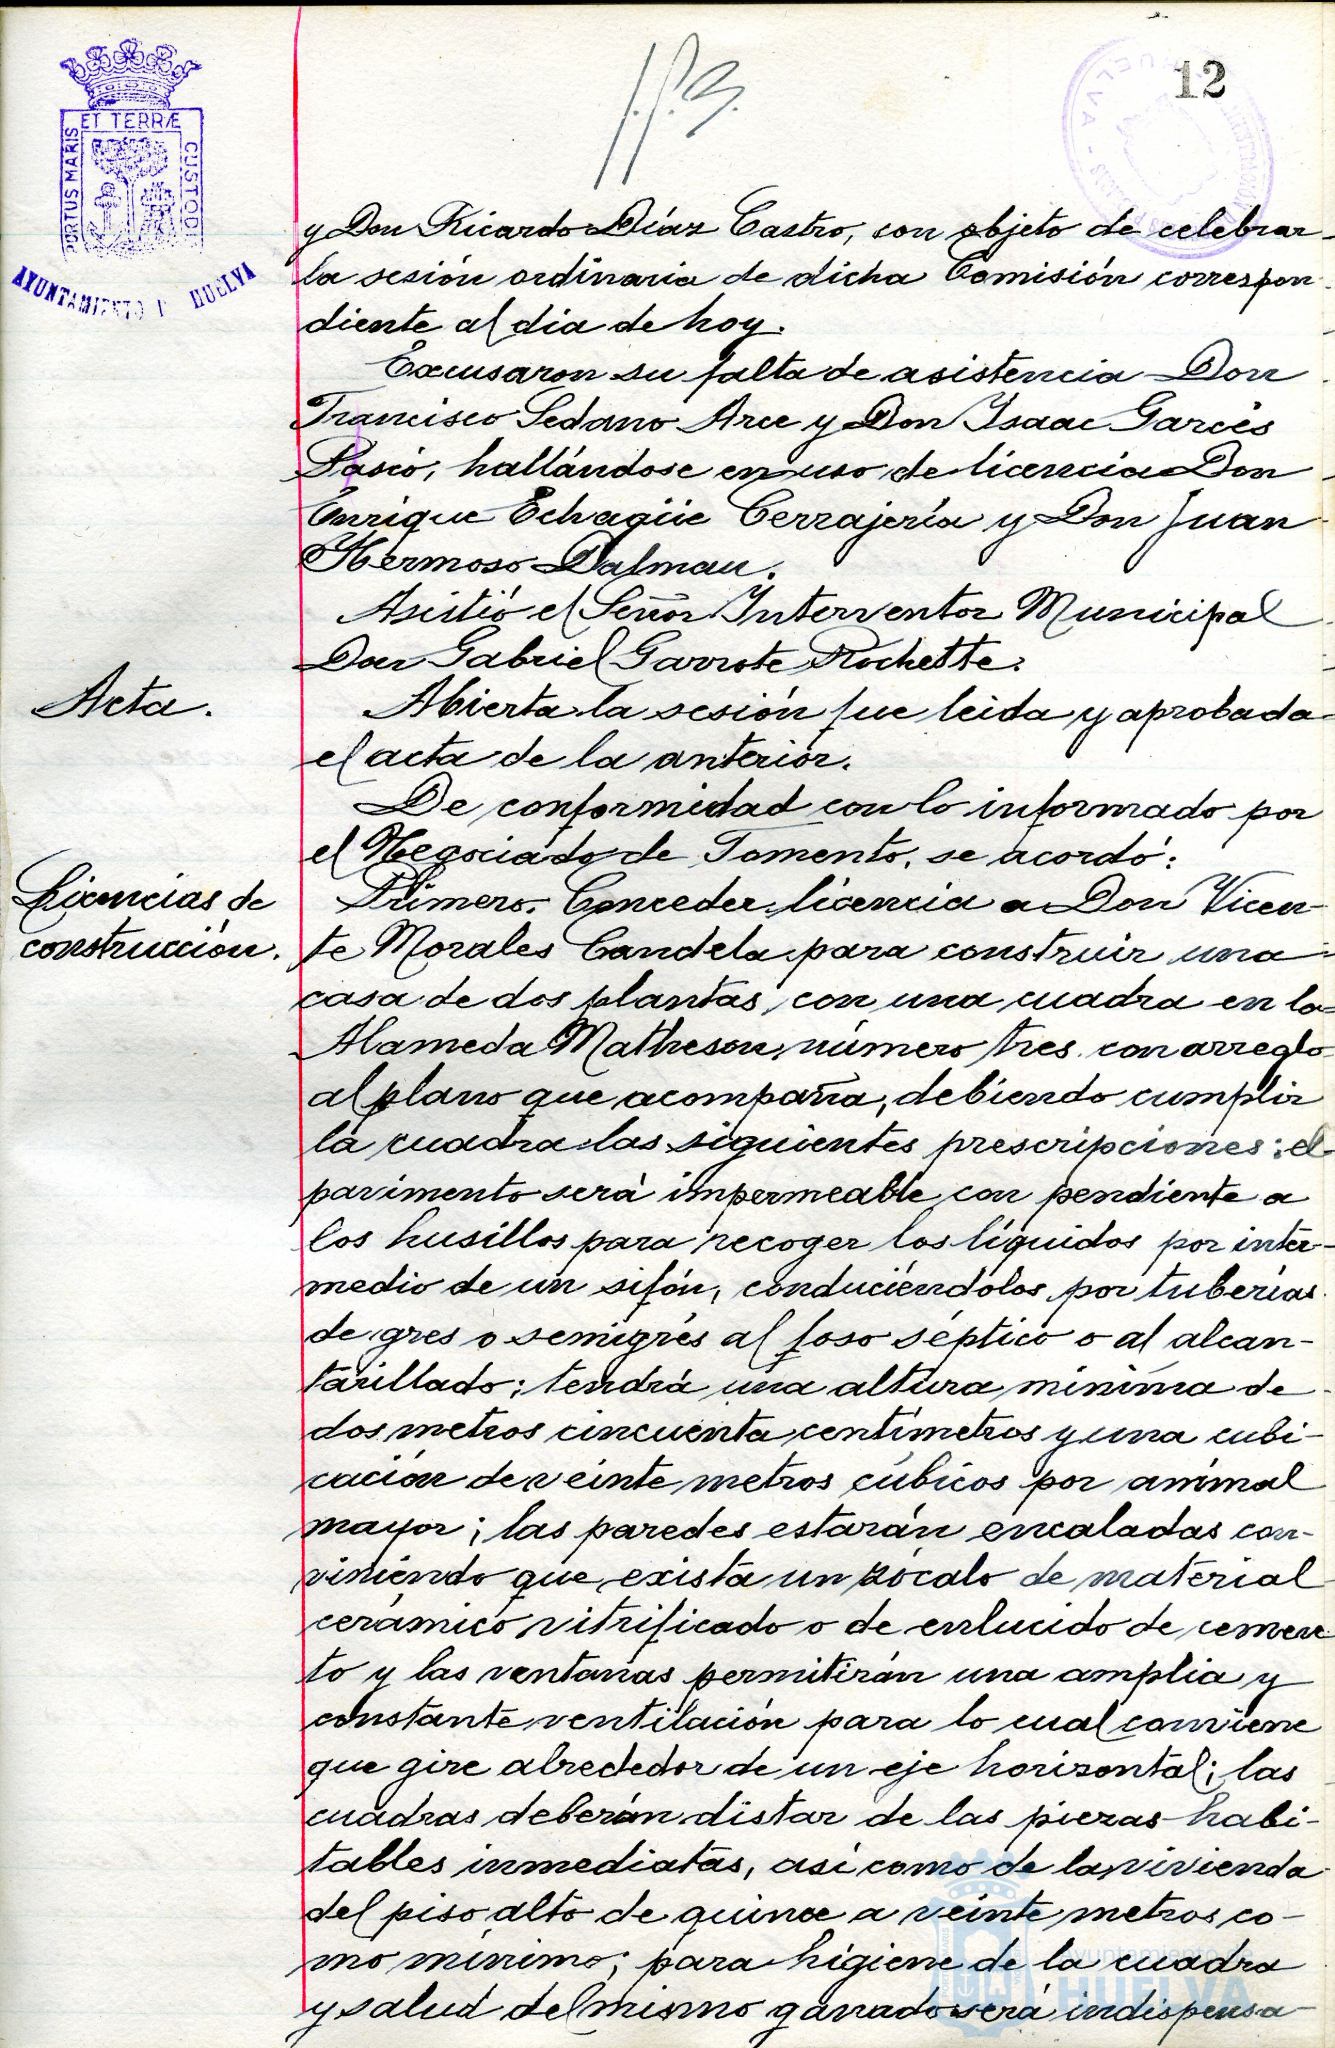 12
PORTUS MARIS
ET TERRÆ
CUSTODI
AYUNTAMIENTO HUELVA
HUELVA
y Don Ricardo Díaz Castro, con objeto de celebrar
la sesión ordinaria de dicha Comisión correspon-
diente al dia de hoy.
Excusaron su falta de asistencia Don
Francisco Sedano Arce y Don Isaac Garcés
Pasco, hallándose en uso de licencia Don
Enrique Echagüe Cerrajería y Don Juan
Hermoso Dalmau.
Asistió el Señor Interventor Municipal
Don Gabriel Garrote Rochette.
Acta.
Abierta la sesión fue leida y aprobada
el acta de la anterior.
De conformidad con lo informado por
el Negociado de Fomento, se acordó:
Licencias de
construcción.
Primero. Conceder licencia a Don Vicen-
te Morales Candela para construir una
casa de dos plantas, con una cuadra en la
Alameda Matheson, número tres, con arreglo
al plano que acompaña, debiendo cumplir
la cuadra las siguientes prescripciones: el
pavimento será impermeable con pendiente a
los husillos para recoger los líquidos por inter-
medio de un sifón, conduciéndolos por tuberías
de gres o semigrés al foso séptico o al alcan-
tarillado; tendrá una altura mínima de
dos metros cincuenta centímetros y una cubi-
cación de veinte metros cúbicos por animal
mayor; las paredes estarán encaladas con-
viniendo que exista un zócalo de material
cerámico vitrificado o de enlucido de cemen-
to y las ventanas permitirán una amplia y
constante ventilación para lo cual conviene
que gire alrededor de un eje horizontal; las
cuadras deberán distar de las piezas habi-
tables inmediatas, asi como de la vivienda
del piso alto de quince a veinte metros co-
mo mínimo; para higiene de la cuadra
y salud del mismo ganado será indispensa-
Ayuntamiento de
HUELVA